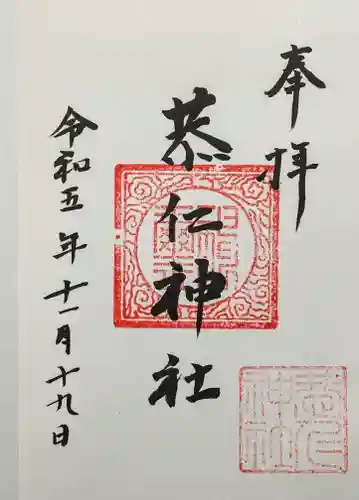 奉拝
恭仁神社
令和五年十一月十九日
恭仁神社